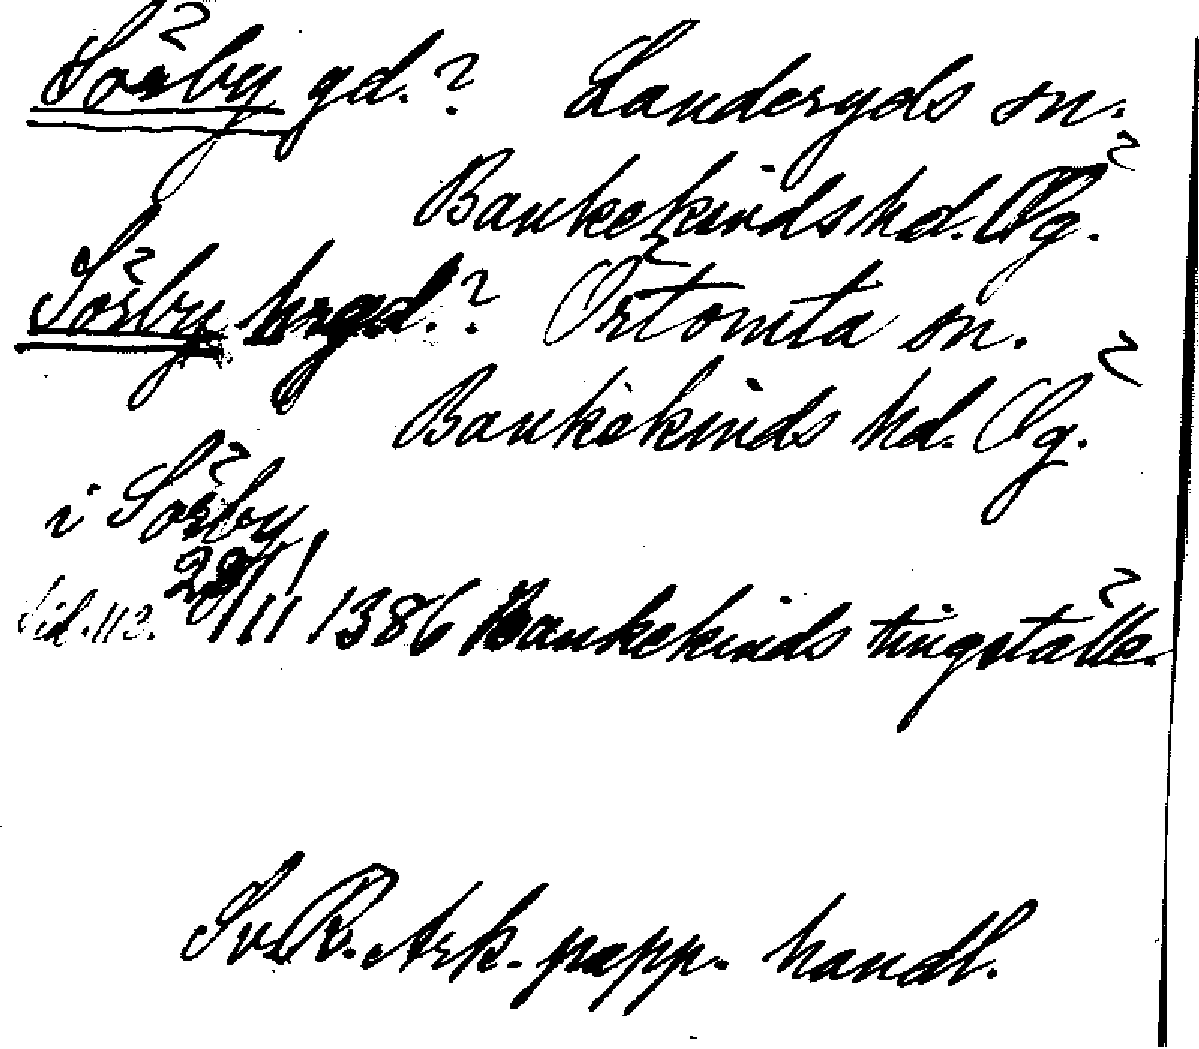 Sörby gd.? Landeryds sn.
Bankekinds hd. Ög.
Sörby hrgd.? Örtomta sn.
Bankekinds hd. Ög.
i Sörby
Sid. 112. 22/11 1386 Bankekinds tingställe.
Sv. R. Ark. papp. handl.